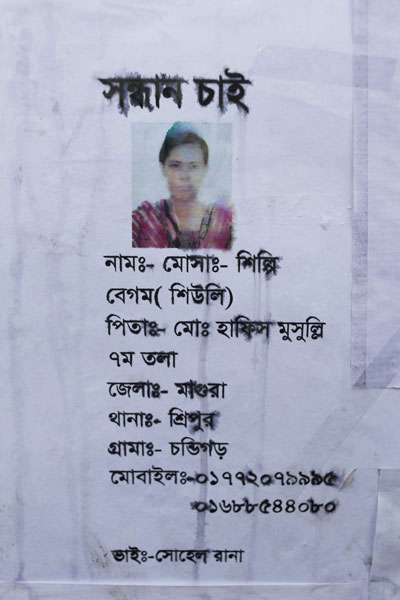 সন্ধান চাই
নামঃ- মোসাঃ- শিল্পি
বেগম( শিউলি)
পিতাঃ- মোঃ হাফিস মুসুল্লি
৭ম তলা
জেলাঃ- মাগুরা
থানাঃ- শ্রিপুর
গ্রামাঃ- চন্ডিগড়
মোবাইলঃ-০১৭৭২০৭৯৯৯৫
০১৬৮৮৫৪৪০৮০
ভাইঃ-সোহেল রানা